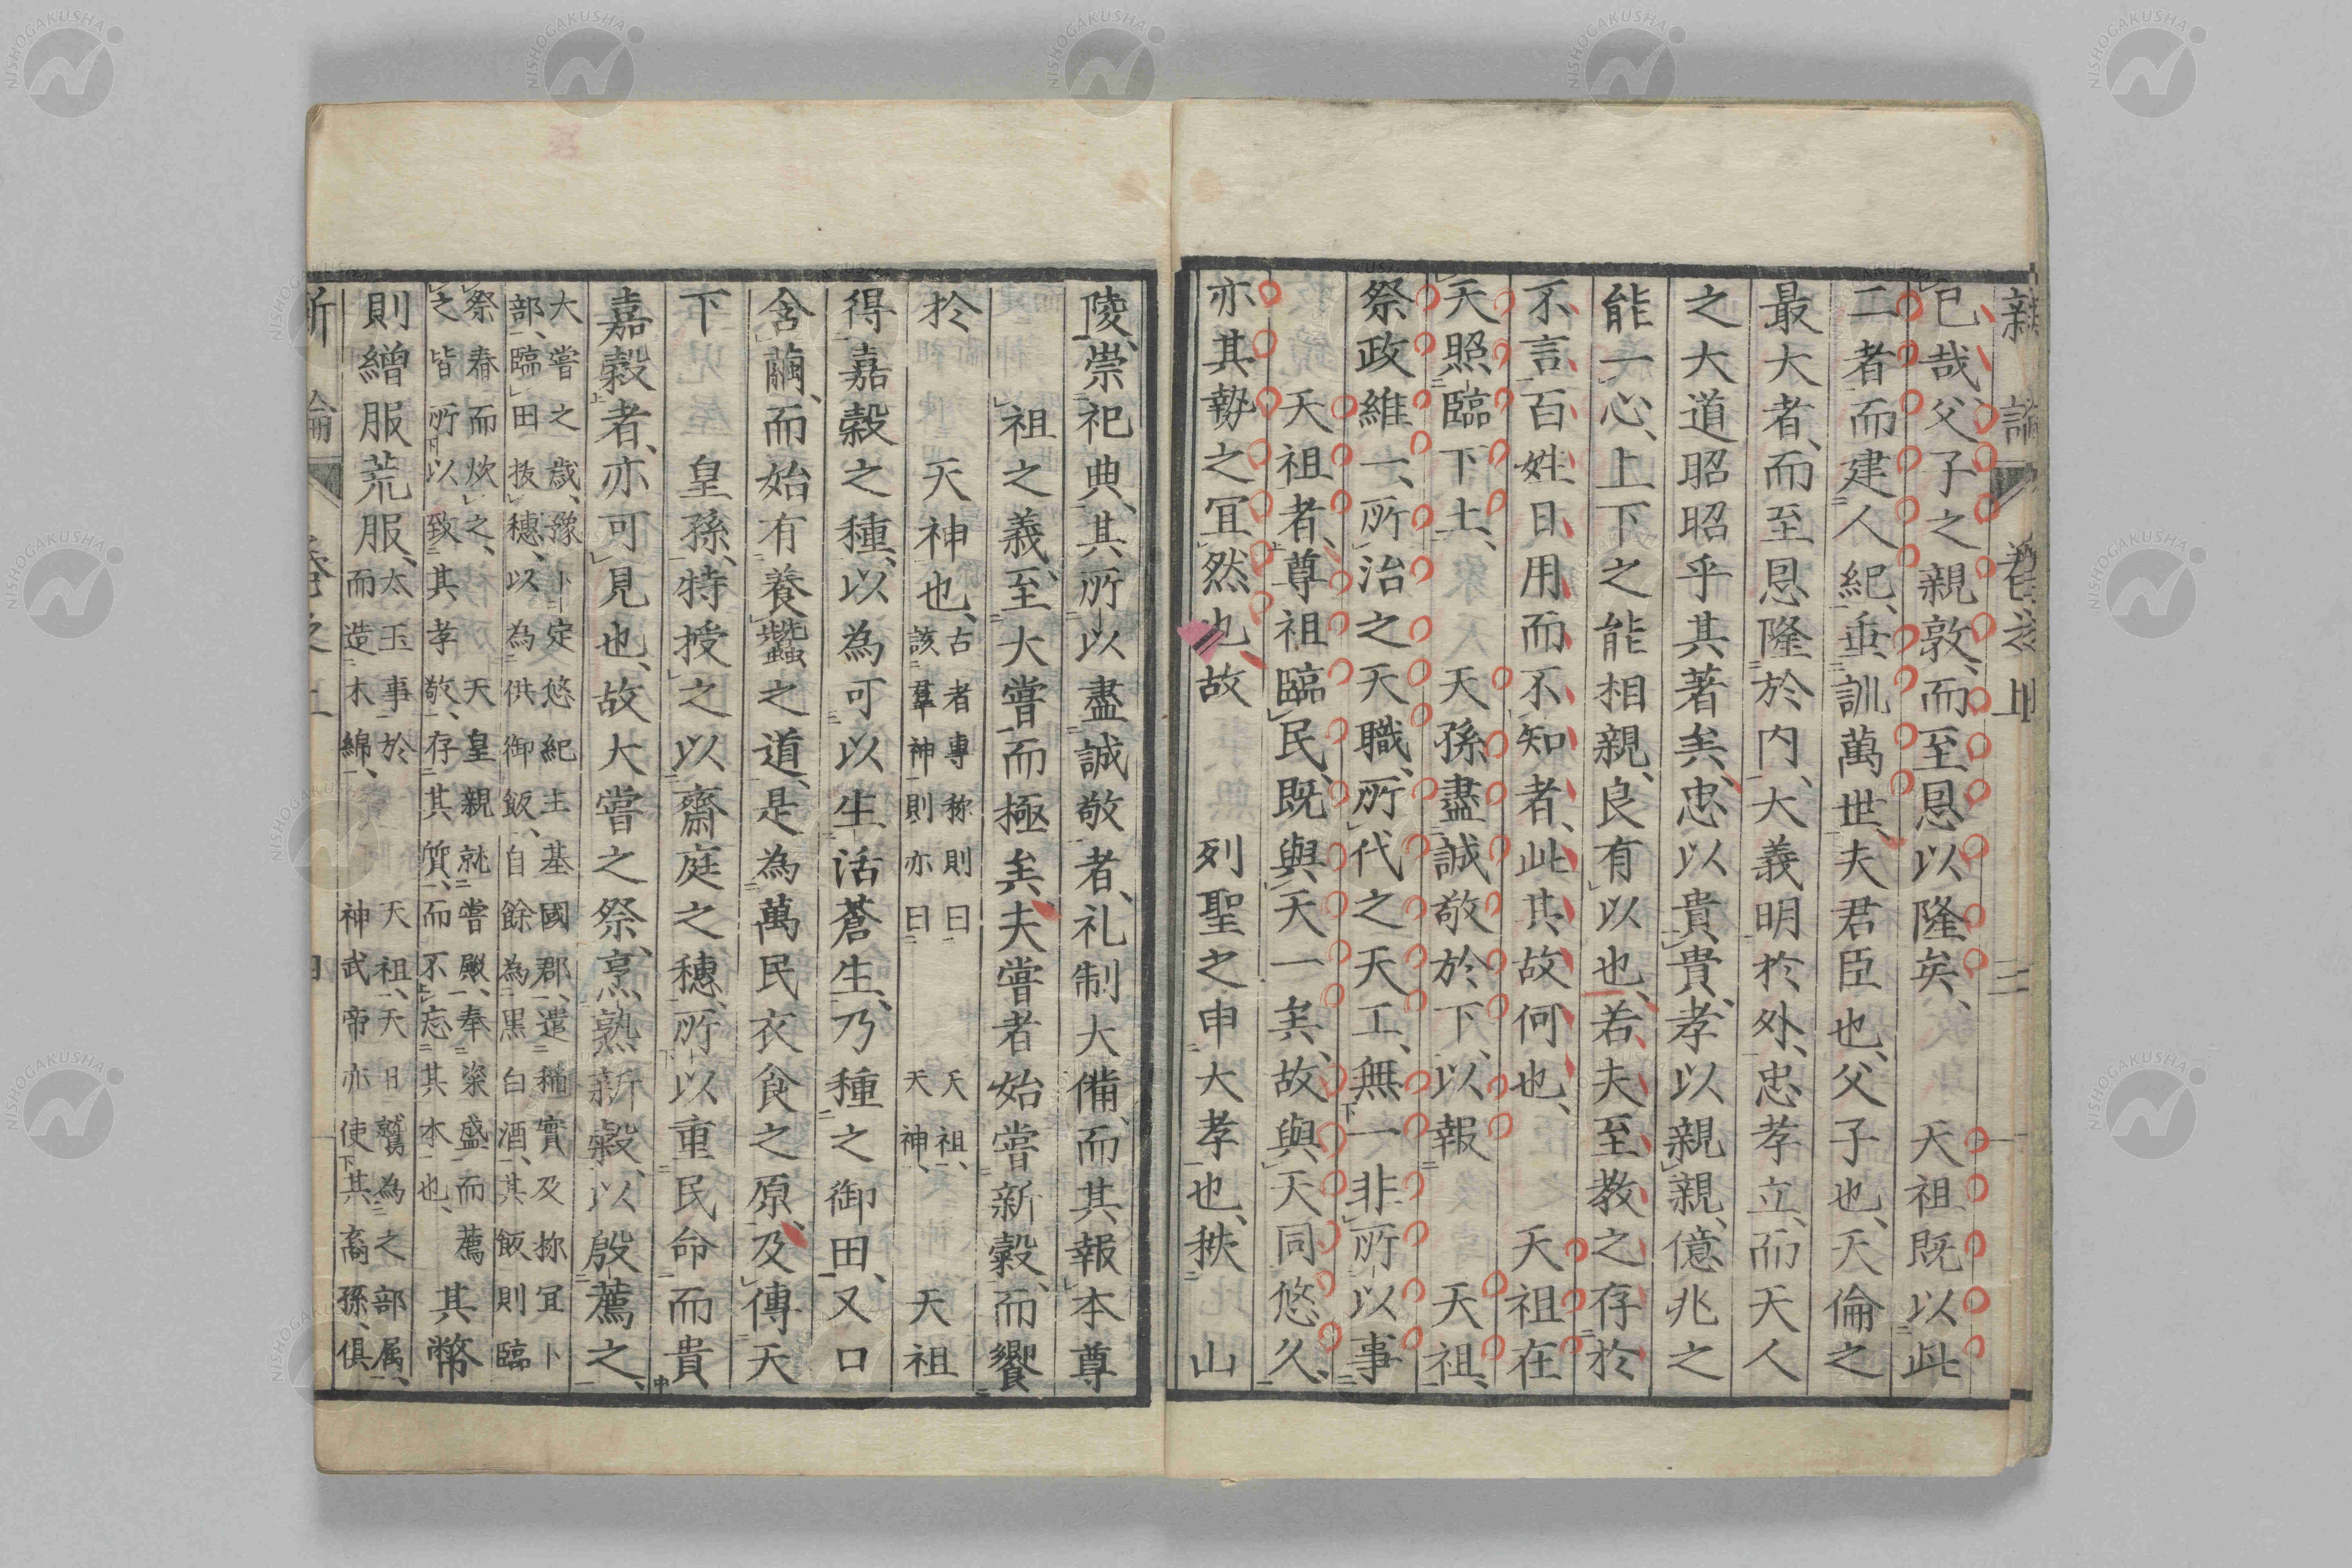 新論 卷之上 三
已哉、父子之親敦、而至恩以隆矣、 天祖既以此
二者而建人紀、垂訓萬世、夫君臣也、父子也、天倫之
最大者、而至恩隆於内、大義明於外、忠孝立、而天人
之大道昭昭乎其著矣、忠以貴貴、孝以親親、億兆之
能一心、上下之能相親、良有以也、若夫至教之存於
不言、百姓日用而不知者、此其故何也、 天祖在
天照臨下土、 天孫盡誠敬於下、以報 天祖、
祭政維一、所治之天職、所代之天工、無一非所以事
天祖者、尊祖臨民、既與天一矣、故與天同悠久、
亦其勢之宜然也、故 列聖之申大孝也、秩山
陵、崇祀典、其所以盡誠敬者、礼制大備、而其報本尊
祖之義、至大嘗而極矣、夫嘗者始嘗新穀、而饗
於 天神也、古者專称則曰 天祖、
該羣神則亦曰 天神、 天祖
得嘉穀之種、以為可以生活蒼生、乃種之御田、又口
含繭、而始有養蠶之道、是為萬民衣食之原、及傳天
下 皇孫、特授之以齋庭之穗、所以重民命而貴
嘉穀者、亦可見也、故大嘗之祭、烹熟新穀、以殷薦之、
大嘗之歳、豫卜定悠紀主基國郡、遣稲實及祢宜卜
部、臨田抜穗、以為供御飯、自餘為黒白酒、其飯則臨
祭舂而炊之、 天皇親就嘗殿、奉粢盛而薦
之、皆所以致其孝敬、存其質、而不忘其本也、 其幣
則繒服荒服、太玉事於 天祖、天日鷲為之部属、
而造木綿、 神武帝亦使其裔孫、俱
新論 卷之上 四